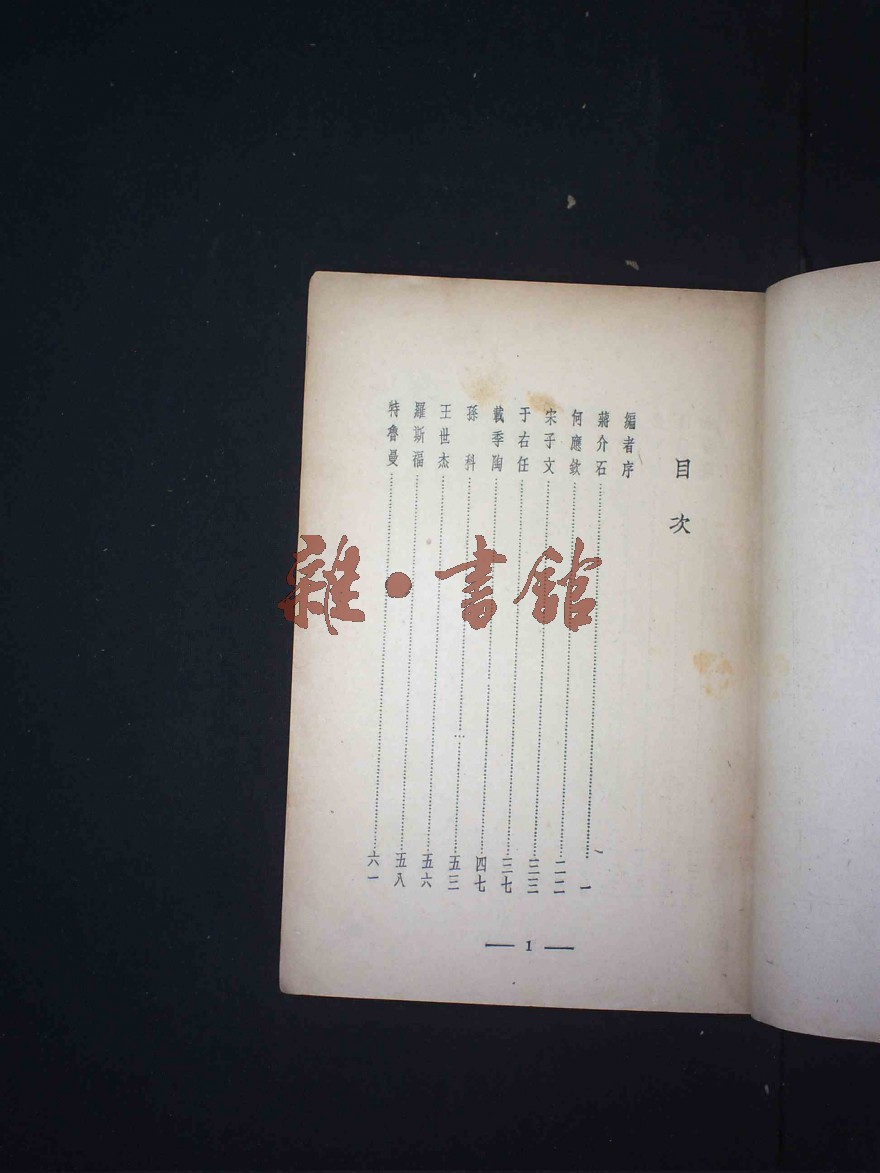 目次
編者序
蔣介石……一
何應欽……二二
宋子文……三三
于右任……三七
載季陶……四七
孫科……五三
王世杰……五六
羅斯福……五八
特魯曼……六一
— 1 —
雜·書館